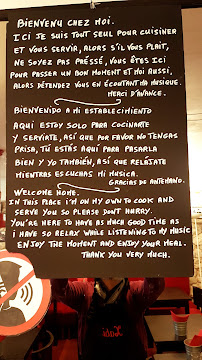 BIENVENU CHEZ MOI.
ICI JE SUIS TOUT SEUL POUR CUISINER
ET VOUS SERVIR, ALORS S'IL VOUS PLAIT,
NE SOYEZ PAS PRÉSSÉ, VOUS ÊTES ICI
POUR PASSER UN BON MOMENT ET MOI AUSSI,
ALORS DÉTENDEZ VOUS EN ÉCOUTANT MA MUSIQUE.
MERCI D'AVANCE.
BIENVENIDO A MI ESTABLECIMIENTO
AQUI ESTOY SOLO PARA COCINARTE
Y SERVIRTE, ASÍ QUE POR FAVOR NO TENGAS
PRISA, TÚ ESTÁS AQUÍ PARA PASARLA
BIEN Y YO TAMBIÉN, ASÍ QUE RELÁJATE
MIENTRAS ESCUCHAS MI MUSICA.
GRACIAS DE ANTEMANO.
WELCOME HOME.
IN THIS PLACE I'M ON MY OWN TO COOK AND
SERVE YOU SO PLEASE DON'T HURRY.
YOU'RE HERE TO HAVE AS MUCH GOOD TIME AS
I HAVE SO RELAX WHILE LISTENING TO MY MUSIC
ENJOY THE MOMENT AND ENJOY YOUR MEAL.
THANK YOU VERY MUCH.